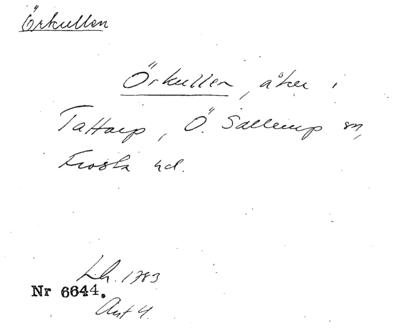 Örkullen
Örkullen, åker i
Tattarp, Ö. Sallerup sn,
Frosta hd.
Lh. 1783
Nr 6644.
Akt 4.